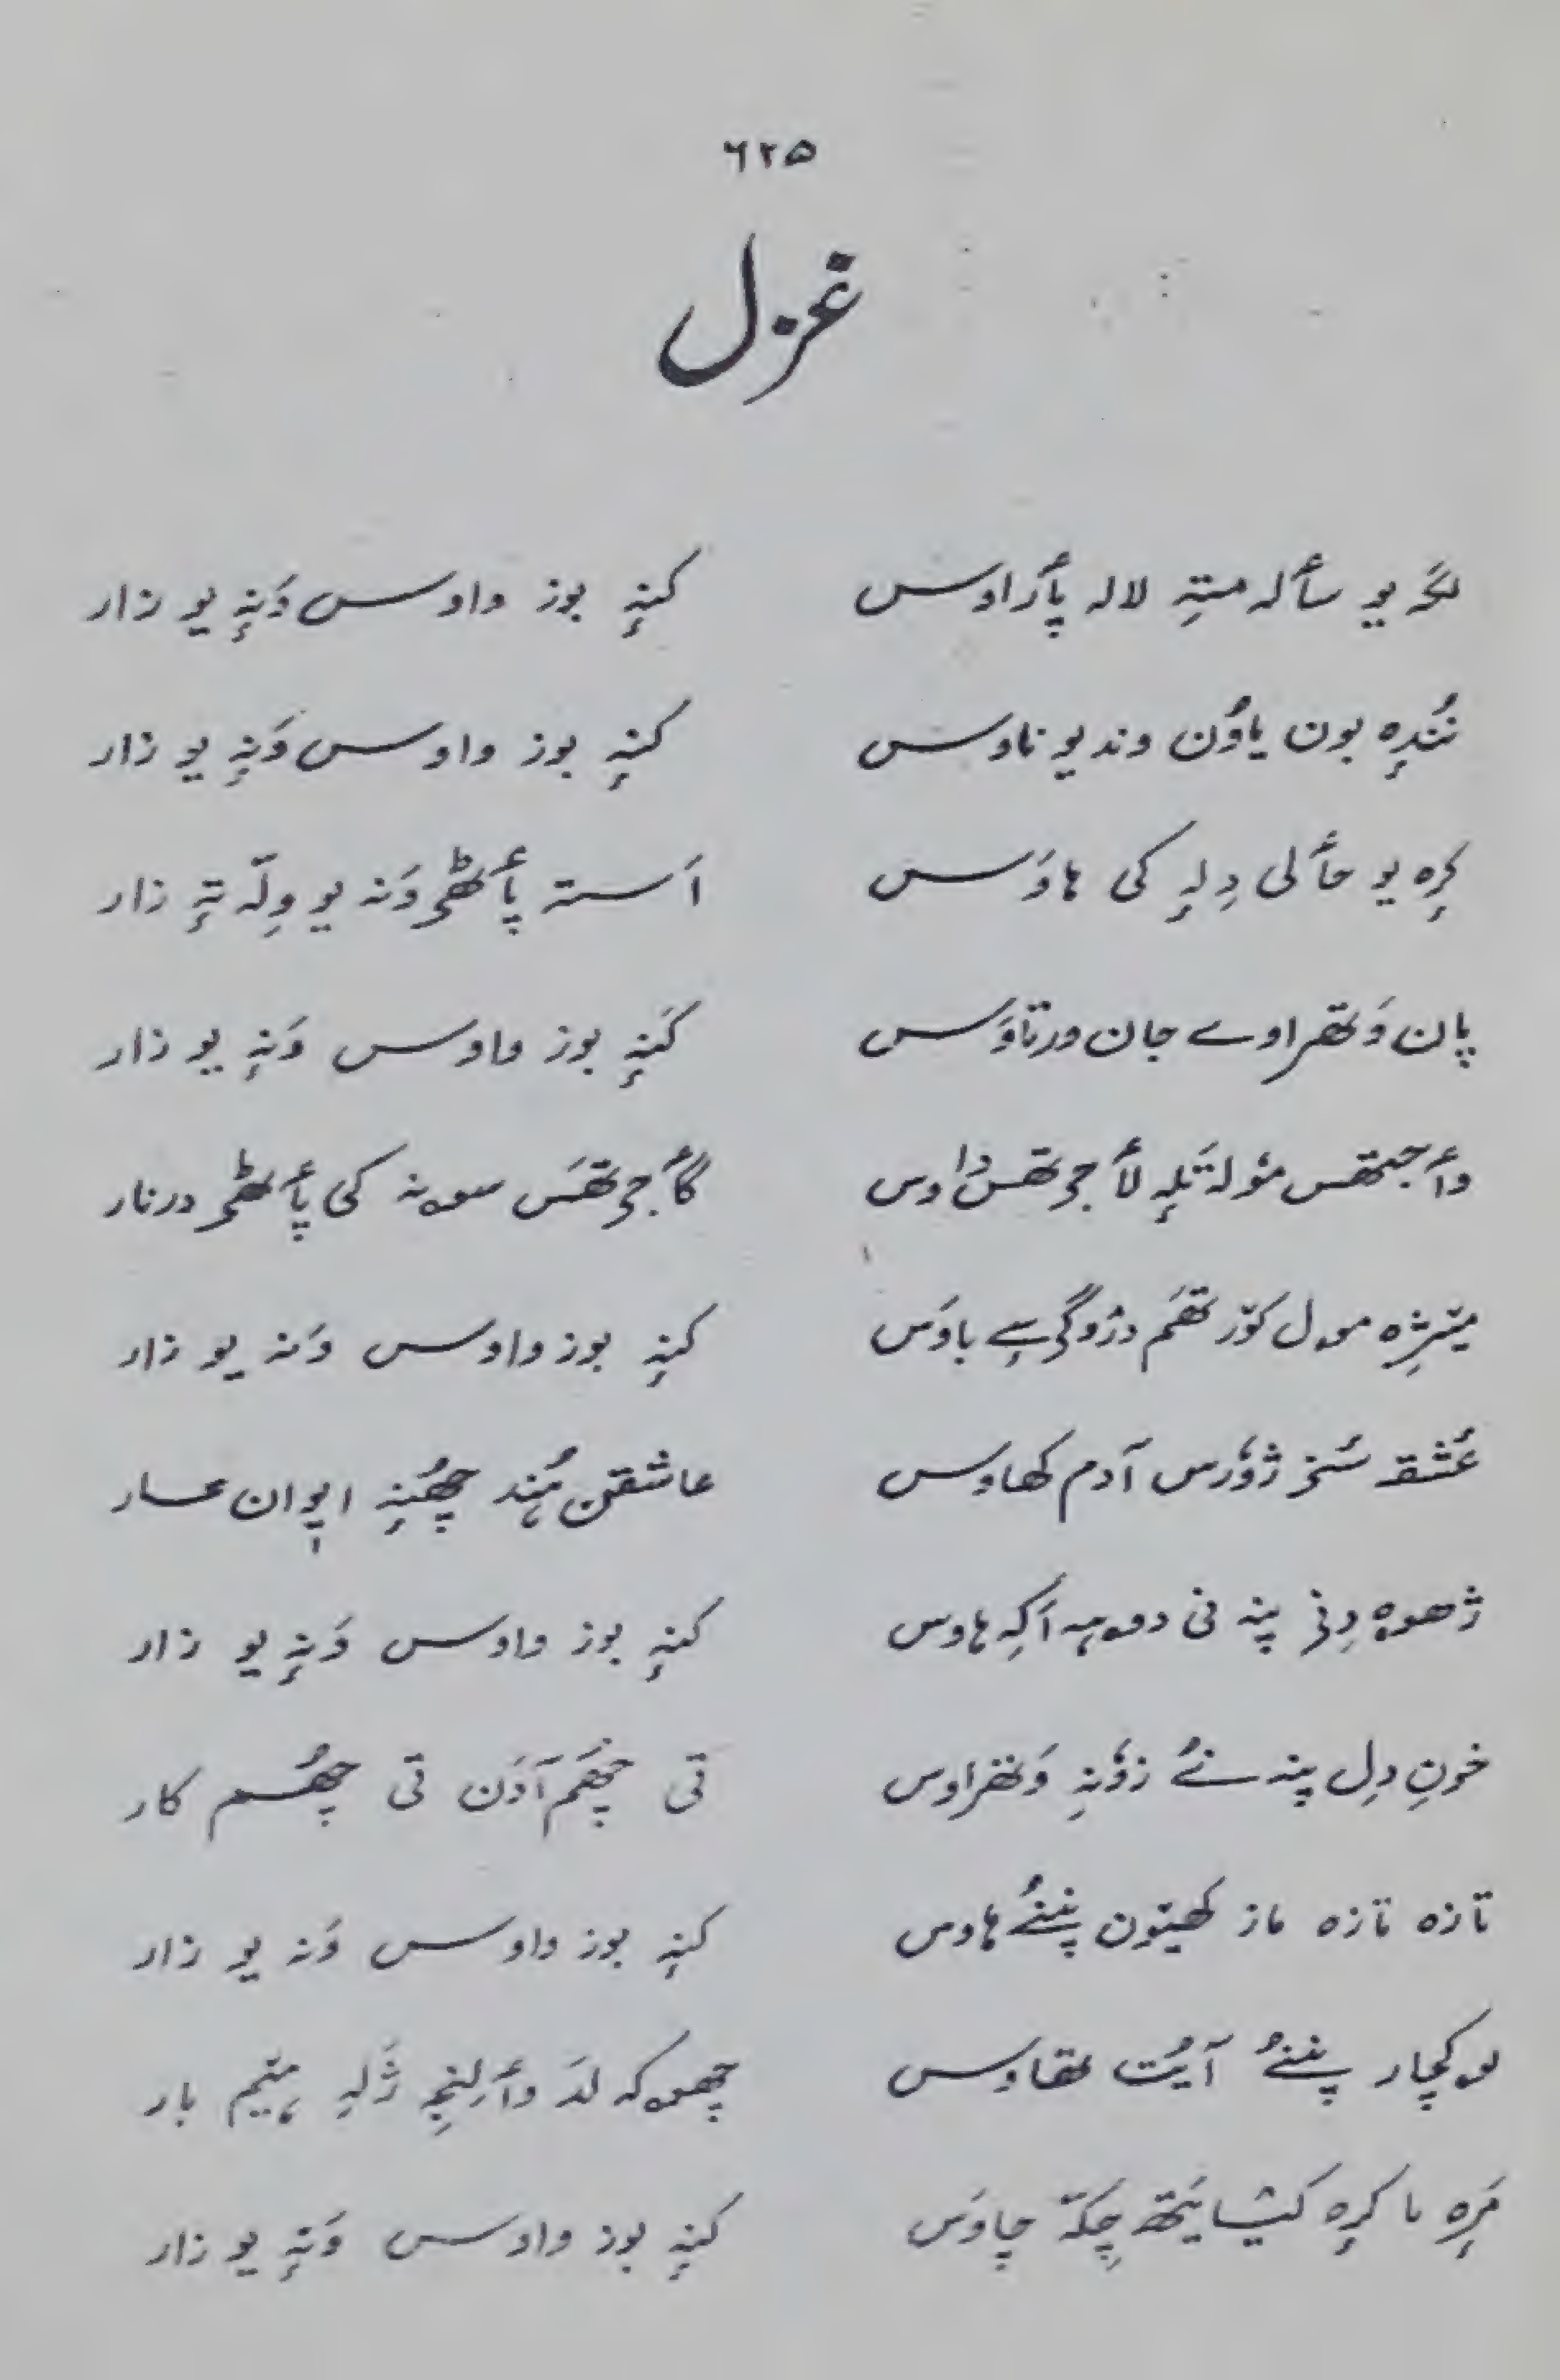 ۶۲۵
غزل
لگہ یو سأله متہِ لالہ پأراوس کنہٕ بوز واوس وَنہٕ یو زار
نُندرٕہ بون یاوُن وندیو ناوس کنہٕ بوز واوس وَنہٕ یو زار
کرٕہ یو حألی دِلہٕ کی ہاوَس اَستہ پأٹھر وَنہ یو وِلہٕ تہٕ زار
پان وَتھراوے جان ورتاوَس کَنہٕ بوز واوس وَنہٕ یو زار
وأجتھس مؤلہ تَلہٕ لأجرتھس داوس گأجرتھَس سونہ کی پأٹھر درنار
میتِرٕژہ مول کوٚرتھَم دزوگرسے باوَس کنہٕ بوز واوس وَنہ یو زار
عُشقہ سُنز ژوٗرس آدم کھاوس عاشقن ہُند چھُنہٕ ایوان عار
ژھوہ دِنی پنہ نی دوہہ اَکہِ ہاوس کنہٕ بوز واوس وَنہٕ یو زار
خونِ دِل پنہ نُے زوٗنہِ وَتھراوس تی چھَم آدَن تی چھُم کار
تازہ تازہ ماز کھیتون پننُے ہاوس کنہٕ بوز واوس وَنہ یو زار
لوکچار پننُے آیُت تھاوس چھوکہ لَد وألنجہِ ژَلہِ ہیم بار
مَرٕہ نا کرٕہ کیشا یَتھ چکہٕ چاوَس کنہٕ بوز واوس وَنہٕ یو زار